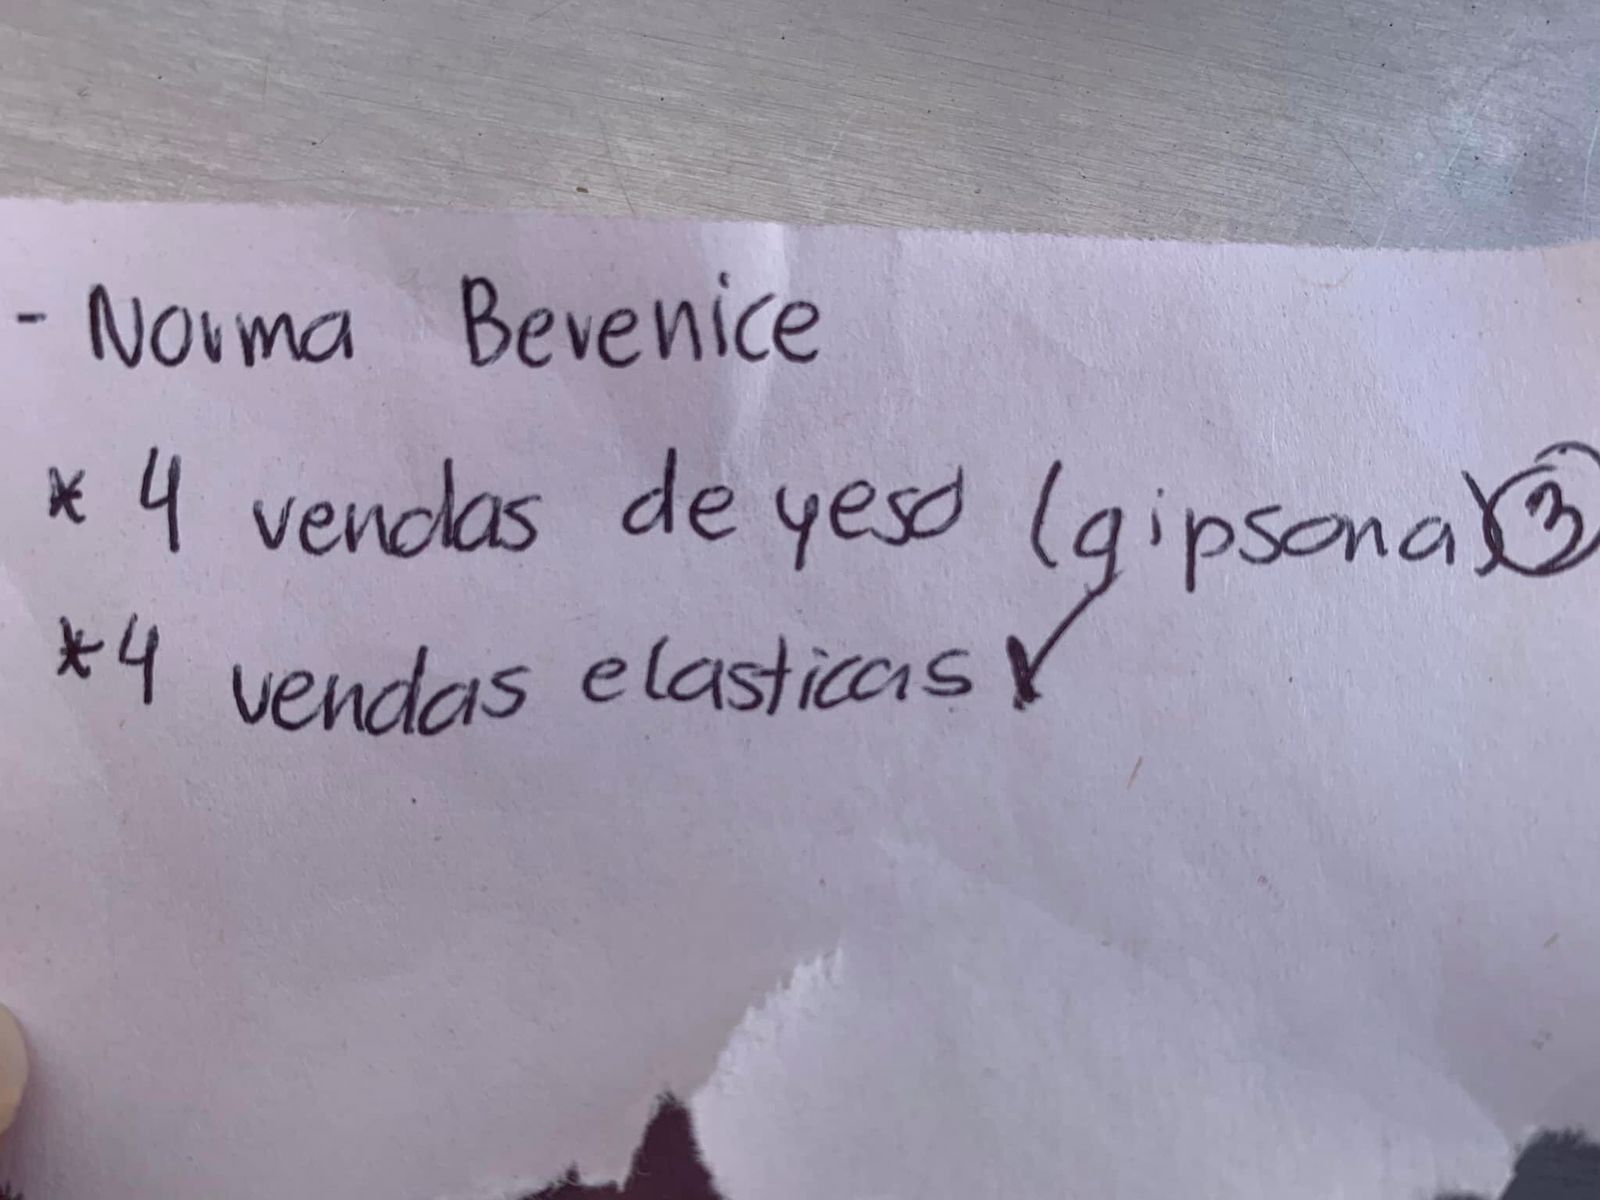 - Norma Berenice
* 4 vendas de yeso (gipsona) 3
* 4 vendas elasticas ✓